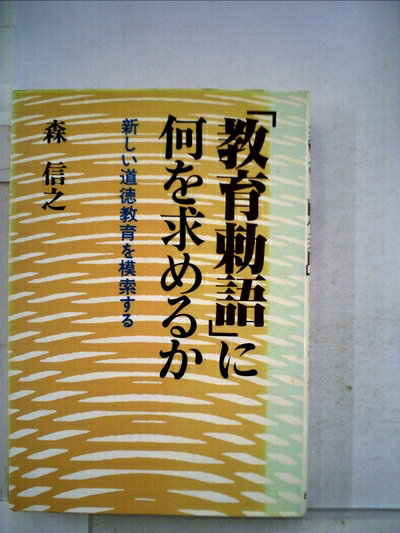 「教育勅語」に
何を求めるか
新しい道徳教育を模索する
森 信之